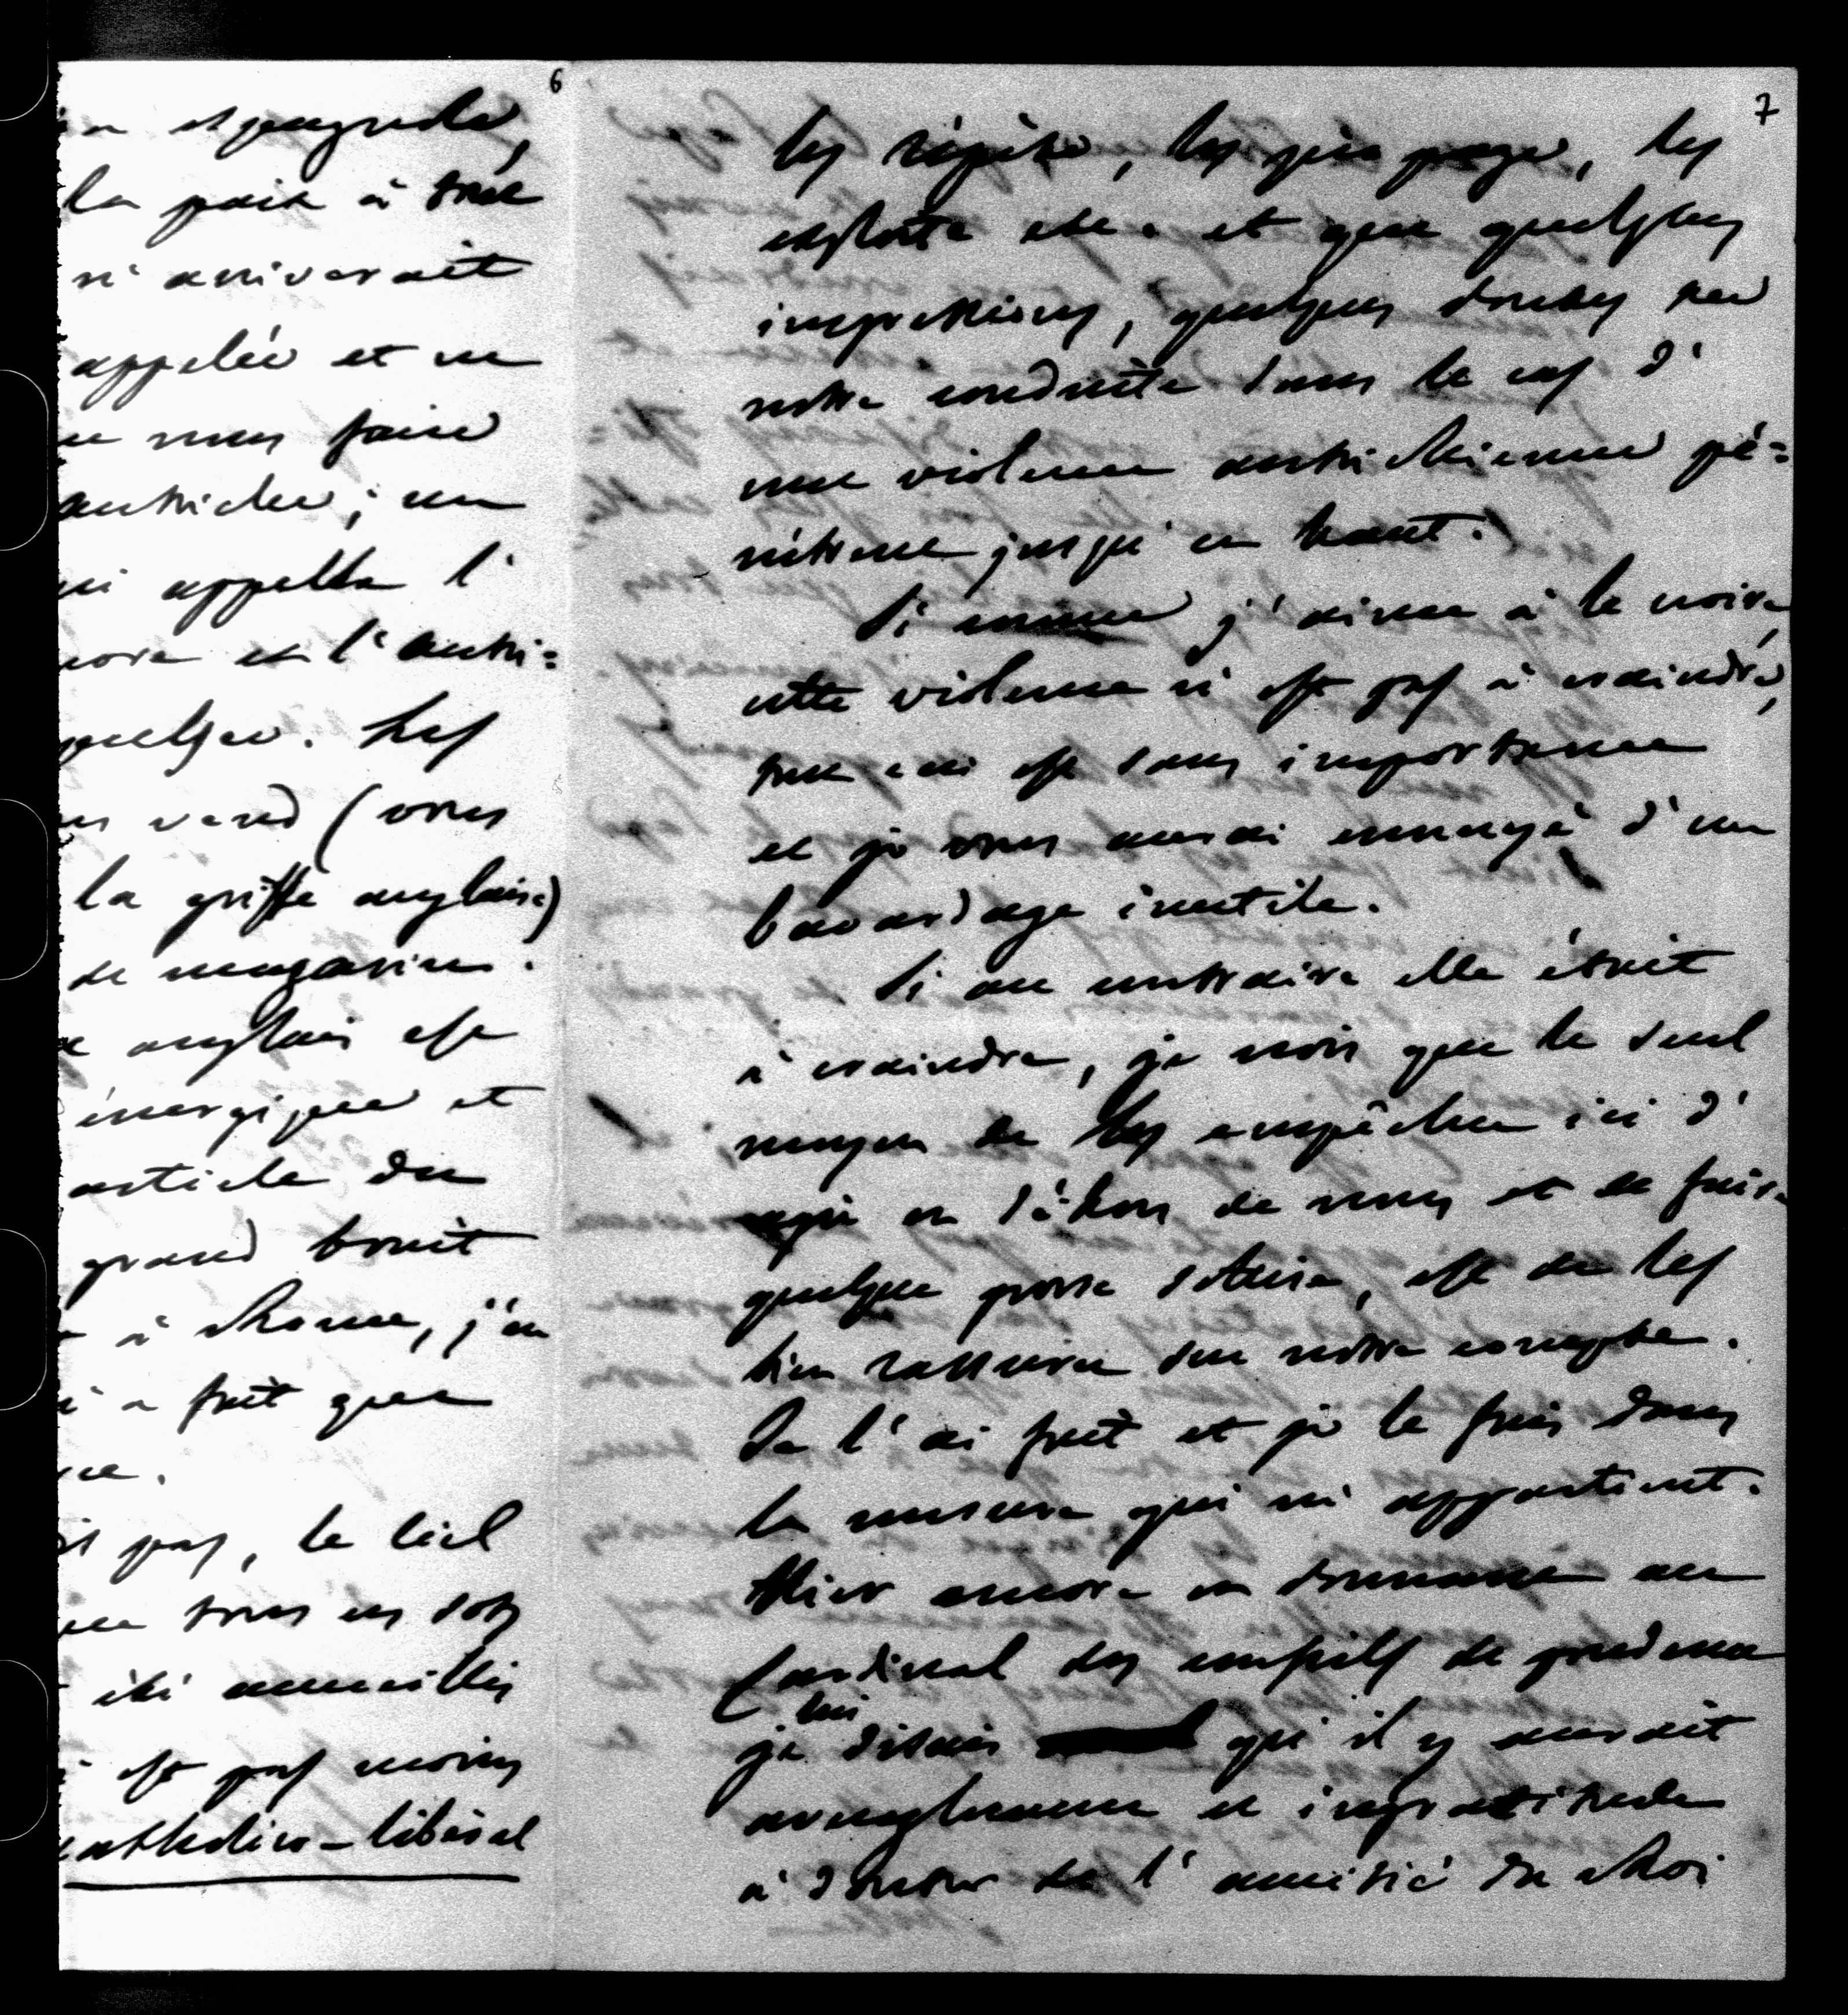 6
et
la paix à tout
n'arriverait
appelée et ne
nous faire
autriche ; un
appella l'
encore et l'autri=
quelque. Les
vend (vous
la griffe anglaise)
de magasins.
anglais est
énergique et
article du
grand bruit
à Rome, j'en
a fait que
pas, le Ciel
tous ces sots
été accueillis
est pas moins
catholico-libéral
7
les répète, les propage, les
exploite etc. et que quelques
impressions, quelques doutes sur
notre conduite dans le cas d'
une violence autrichienne pé=
nètrent jusqu'en haut.
Si comme j'aime à le croire,
cette violence n'est pas à craindre,
tout ceci est sans importance
et je vous aurai ennuyé d'un
bavardage inutile.
Si au contraire elle était
à craindre, je crois que le seul
moyen de les empêcher ici d'
agir en déhors de nous et de faire
quelque grosse sottise, est de les
bien rassurer sur notre compte.
Je l'ai fait et je le fais dans
la mesure qui m'appartient.
Hier encore en donnant au
Cardinal des conseils de prudence
je lui disais qu'il y aurait
aveuglement et ingratitude
à douter de l'amitié du Roi